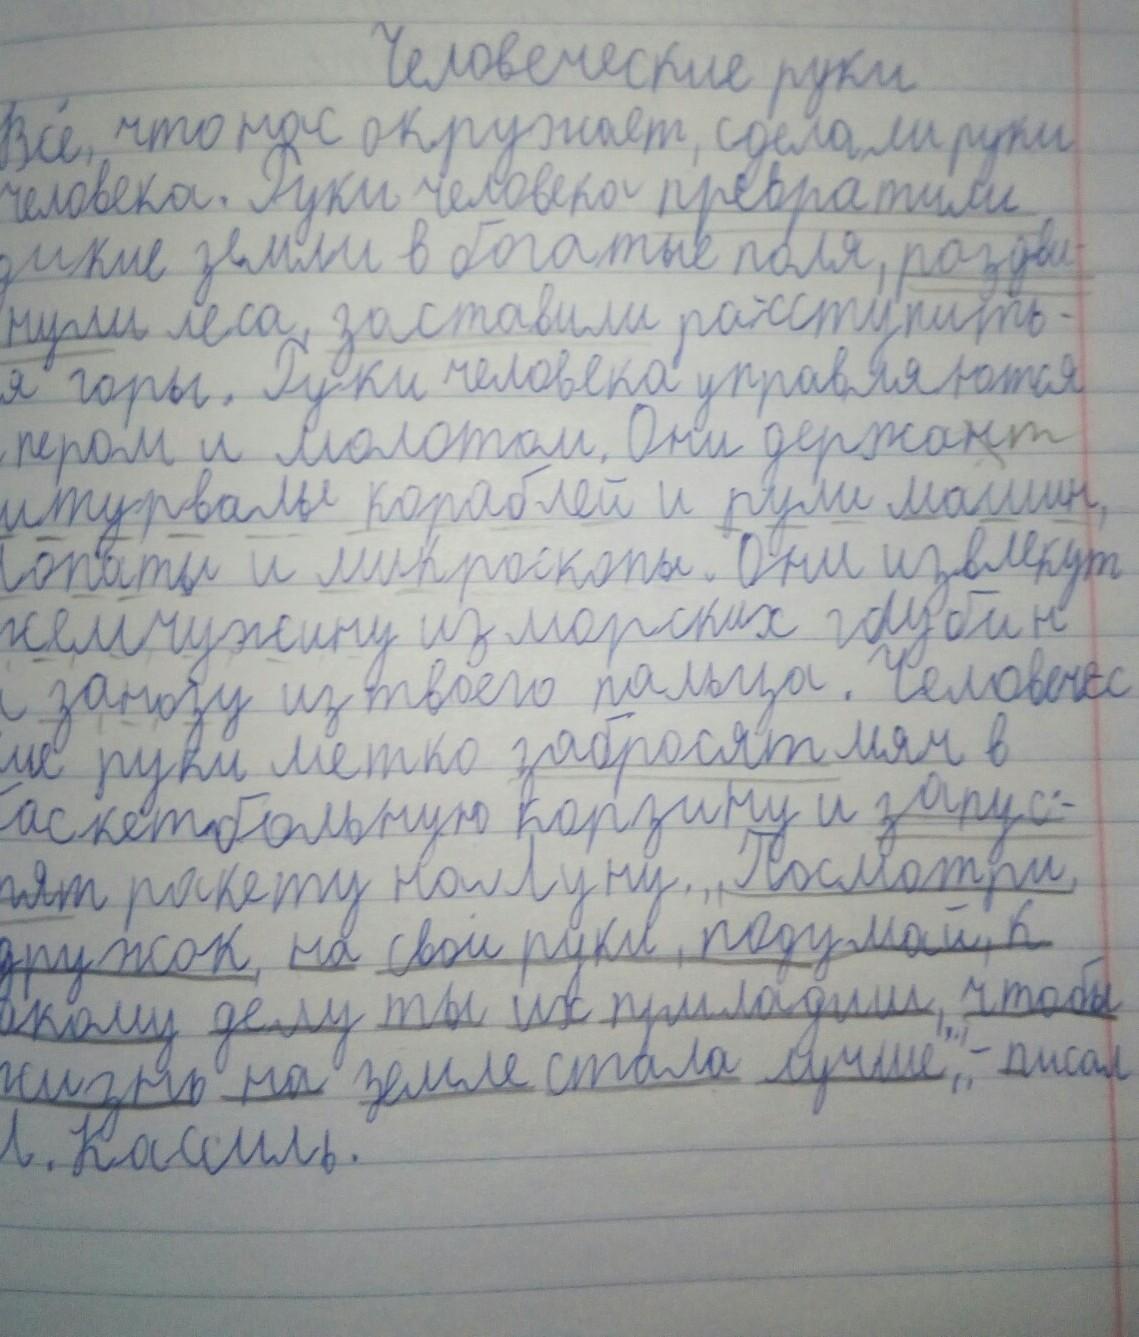 Человеческие руки
Всё, что нас окружает, сделали руки
человека. Руки человека превратили
дикие земли в богатые поля, раздви-
нули леса, заставили расступить-
я горы. Руки человека управляются
пером и молотом. Они держат
штурвалы кораблей и рули машин,
лопаты и микроскопы. Они извлекут
жемчужину из морских глубин
и занозу из твоего пальца. Человечес
ие руки метко забросят мяч в
баскетбольную корзину и запус-
тят ракету на Луну. „Посмотри,
дружок, на свои руки, подумай, к
акому делу ты их приладил, чтобы
жизнь на земле стала лучше", - писал
Л. Кассиль.